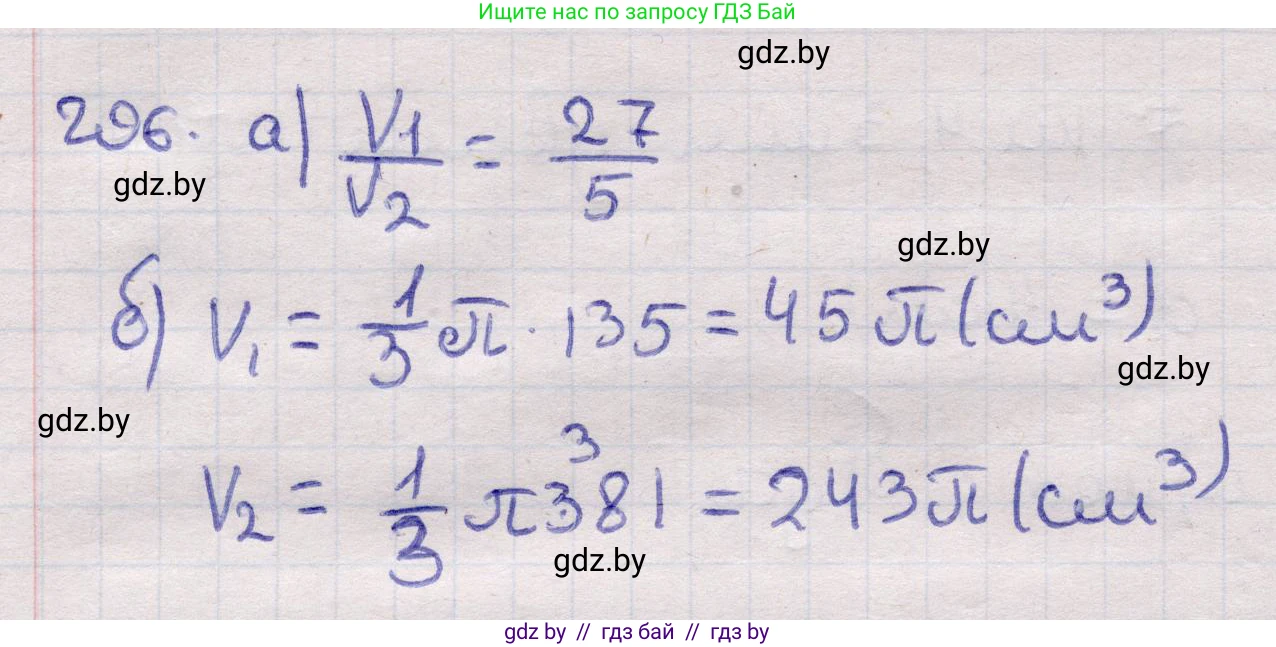 Ищите нас по запросу ГДЗ Бай
gdz.by
296. а) V1/V2 = 27/5
gdz.by
gdz.by
б) V₁ = 1/3 π · 135 = 45π (см³)
gdz.by
gdz.by
V₂ = 1/3 π 3³81 = 243π (см³)
gdz.by
gdz.by // гдз бай // гдз by